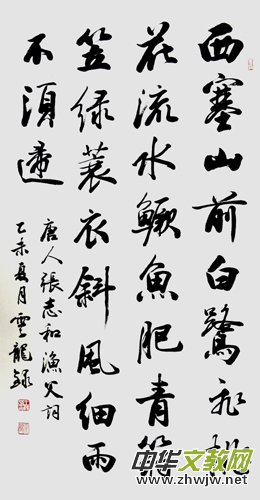 西塞山前白鷺飛桃
花流水鱖魚肥青箬
笠緑蓑衣斜風細雨
不須歸
唐人張志和漁父詞
乙未夏月雲龍錄
中华文教网
www.zhwjw.com